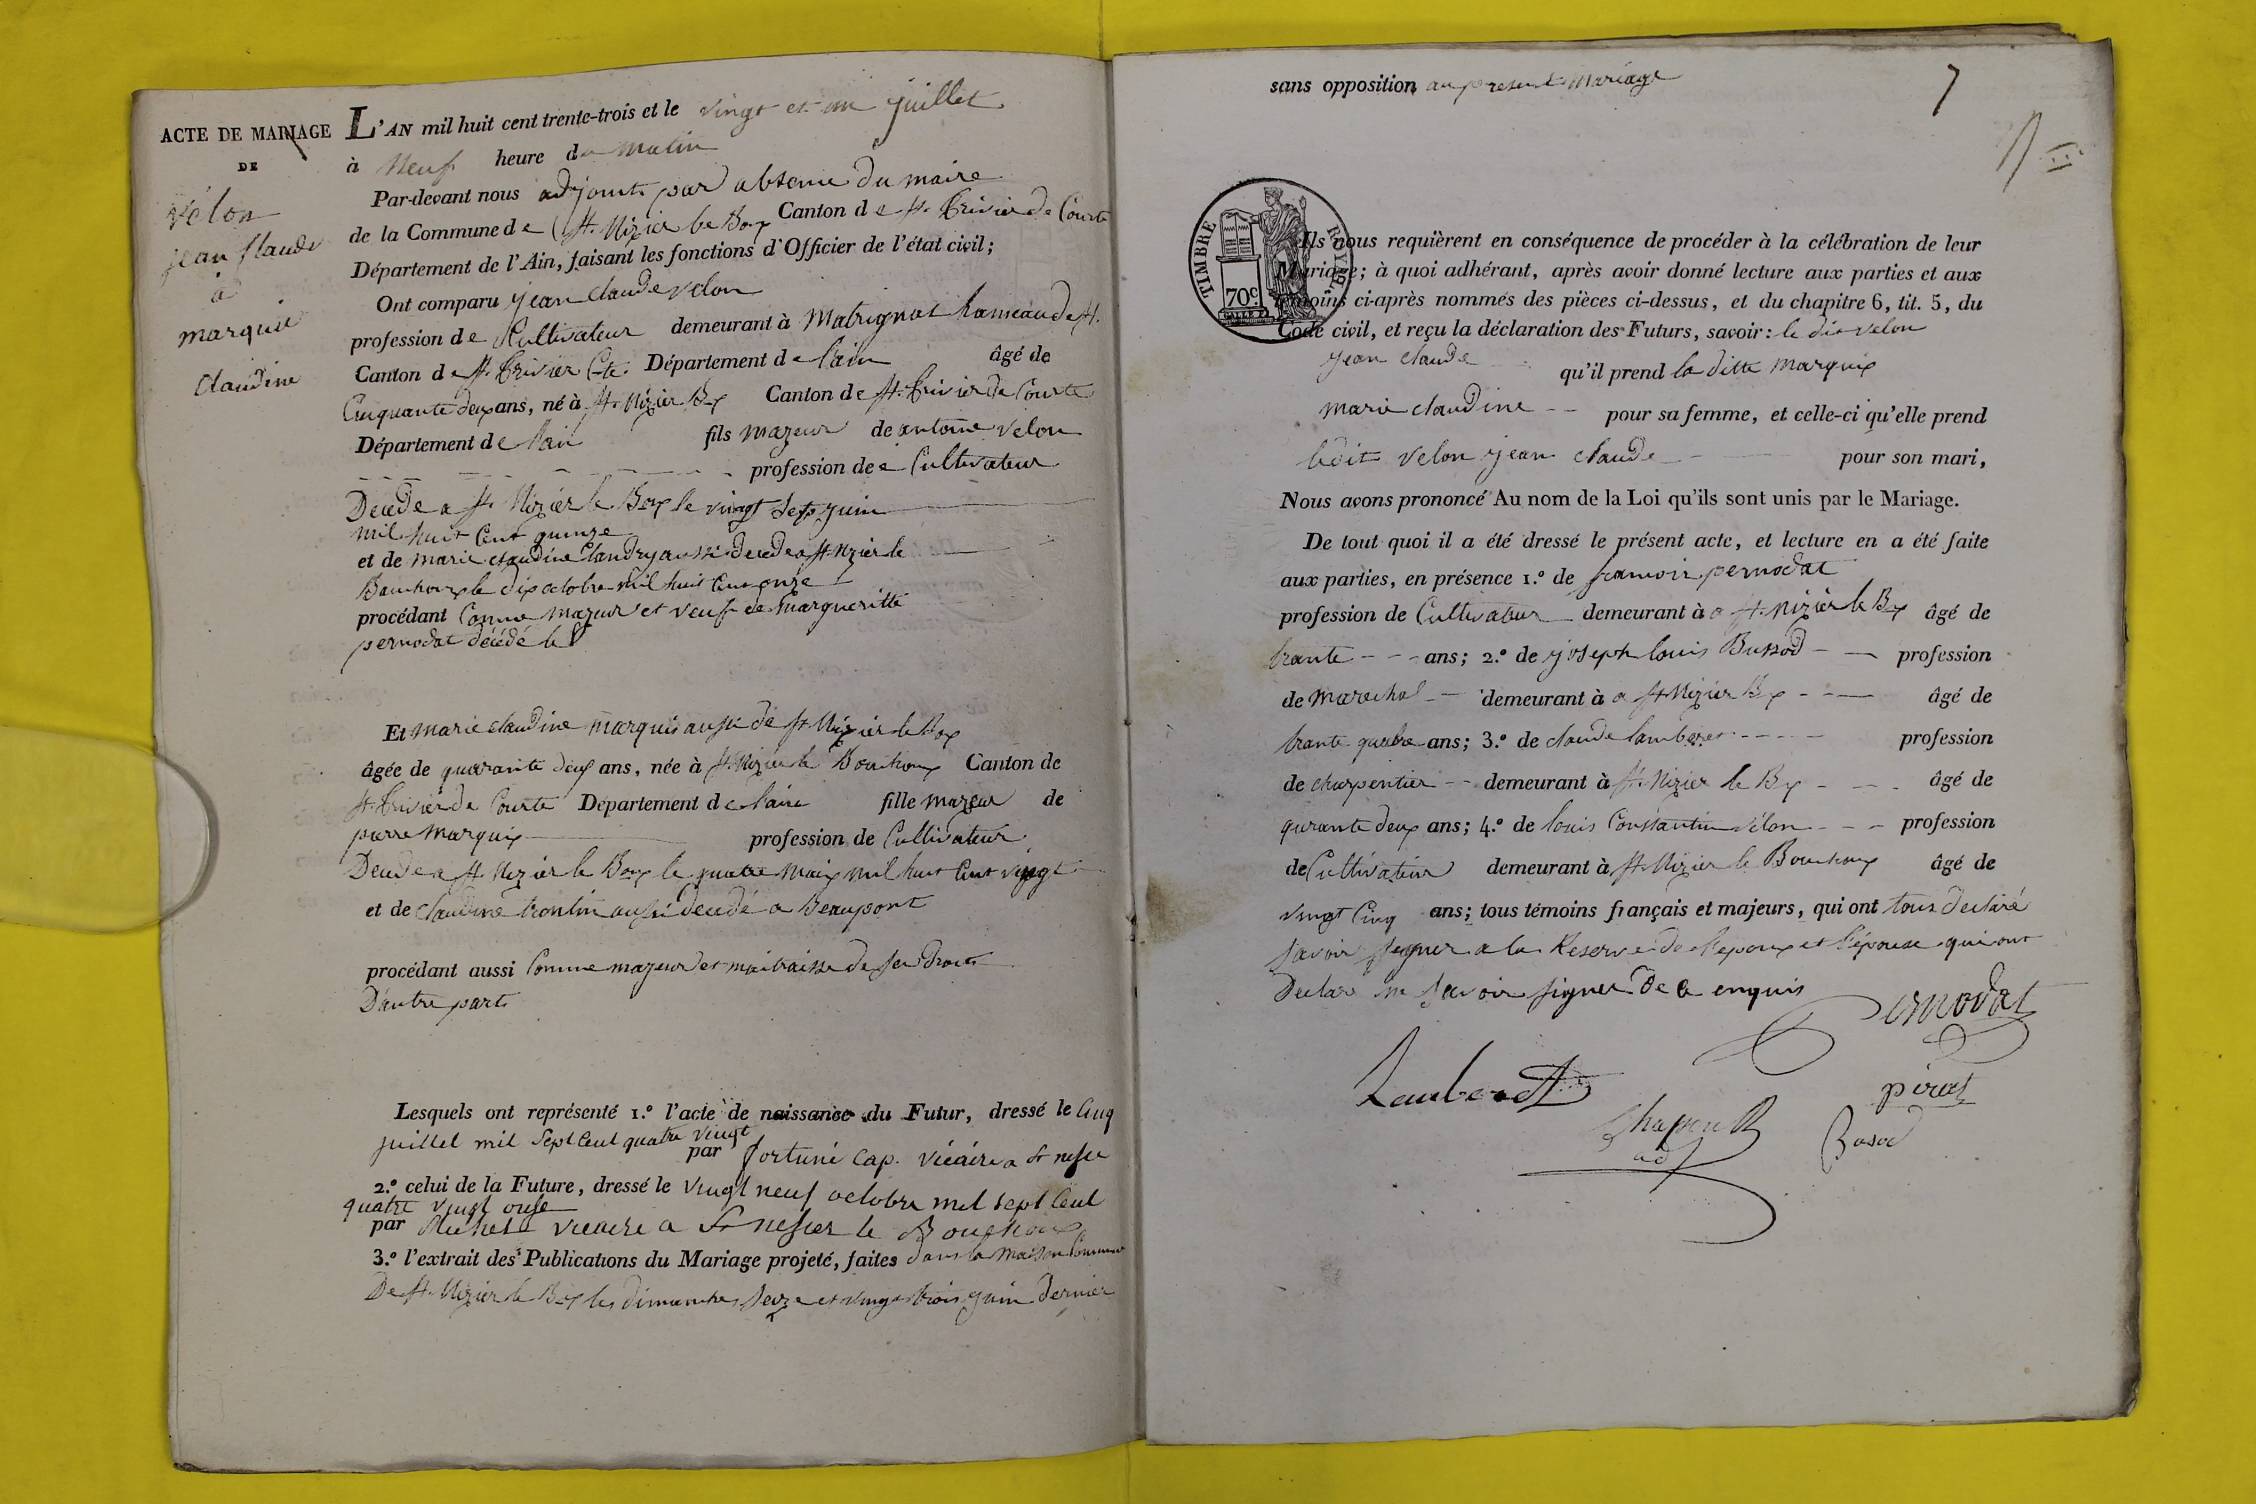 ACTE DE MARIAGE
DE
Vélon
jean Claude
à
marquis
Claudine
L'AN mil huit cent trente-trois et le vingt et un juillet
à Neuf heure du matin
Par-devant nous adjoint par absence du maire
de la Commune de St. Nizier le Boux Canton de St. Trivier de Courte
Département de l'Ain, faisant les fonctions d'Officier de l'état civil;
Ont comparu jean Claude velon
profession de Cultivateur demeurant à Matrignat hameau de St.
Canton de St. Trivier Cte. Département de l'ain âgé de
Cinquante deux ans, né à St. Nizier Bx Canton de St. Trivier de Courte
Département de l'ain fils mageur de antoine velon
profession de Cultivateur
Decede a St. Nizier le Boux le vingt Sept juin
mil huit Cent quinze
et de marie claudine Clandry aussi decede a St. Nizier le
Bouchoux le dix octobre mil huit Cent onze
procédant Comme mageur et veuf de Margueritte
pernodat décédé le
Et marie claudine marquis aussi de St Nizier le Boux
âgée de quarante deux ans, née à St. Nizier le Bouchoux Canton de
St. Trivier de Courte Département de l'ain fille mageur de
pierre Marquix profession de Cultivateur
Decede a St. Nizier le Boux le quatre mars mil huit Cent vingt
et de Claudine trontin aussi decedé a Beaupont
procédant aussi Comme mageur et maitraisse de ses Droits
D'autre part
Lesquels ont représenté 1.º l'acte de naissance du Futur, dressé le Cinq
juillet mil Sept Cent quatre vingt
par fortuné cap. vicaire a St nesier
2.º celui de la Future, dressé le vingt neuf octobre mil sept Cent
quatre vingt onse
par Michel vicaire a St nesier le Bouchoux
3.º l'extrait des Publications du Mariage projeté, faites dans la maison Commune
De St. Nizier le Bx les dimanches seize et vingt trois juin dernier
sans opposition au present Mariage
7
TIMBRE ROYAL
70c.
Ils nous requièrent en conséquence de procéder à la célébration de leur
Mariage; à quoi adhérant, après avoir donné lecture aux parties et aux
témoins ci-après nommés des pièces ci-dessus, et du chapitre 6, tit. 5, du
Code civil, et reçu la déclaration des Futurs, savoir: le dit velon
jean claude qu'il prend la ditte marquix
marie claudine pour sa femme, et celle-ci qu'elle prend
ledit velon jean claude pour son mari,
Nous avons prononcé Au nom de la Loi qu'ils sont unis par le Mariage.
De tout quoi il a été dressé le présent acte, et lecture en a été faite
aux parties, en présence 1.º de francoir pernodat
profession de Cultivateur demeurant à a St. Nizier le Bx âgé de
trante ans; 2.º de joseph louis Bussod profession
de marechal demeurant à a St Nizier Bx âgé de
trante quatre ans; 3.º de claude lamberet profession
de charpentier demeurant à St Nizier le Bx âgé de
qurante deux ans; 4.º de louis Constantin velon profession
de Cultivateur demeurant à St Nizier le Bouchoux âgé de
vingt Cinq ans; tous témoins français et majeurs, qui ont tous declaré
savoir signer a la Reserve de l'epoux et l'épouse qui ont
Declare ne savoir signer De ce enquis
Pernodat
Lamberet
pirat
Chapon
ad
Busod